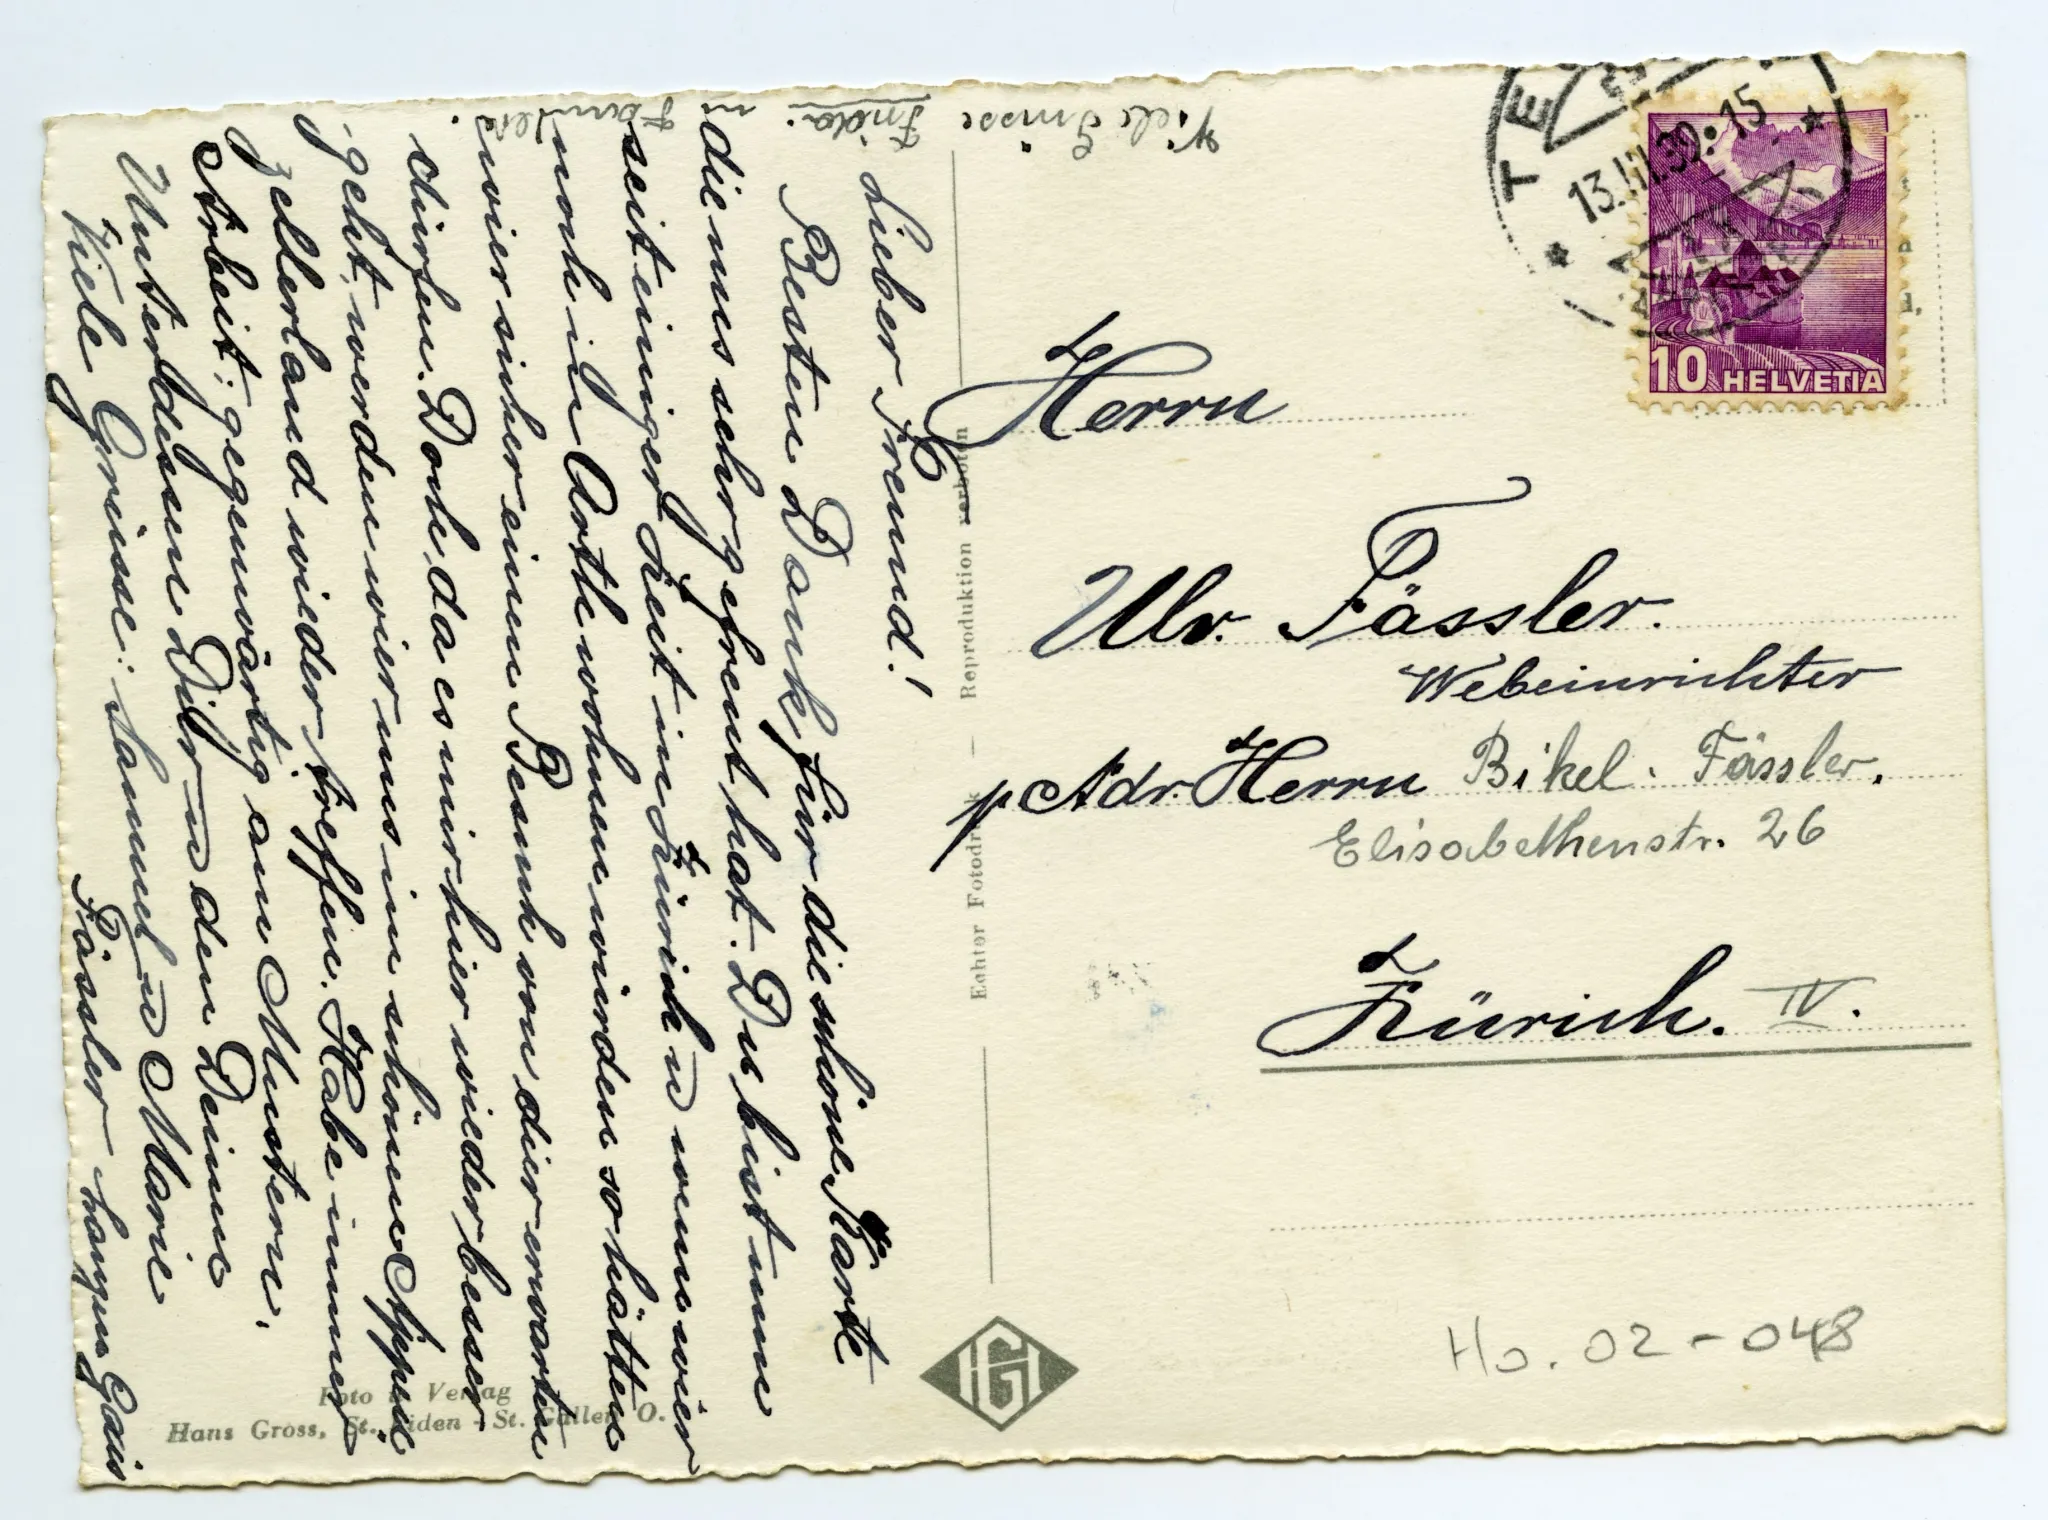 Lieber Freund!
Besten Dank für die schöne Karte
die uns sehr gefreut hat. Du bist nun
seit einiger Zeit in Zürich u wenn wier
noch in Arth wohnen würden so hätten
wier sicher einen Besuch von dier erwarten
dürfen. Doch da es mir hier wieder besser
geht, werden wier uns im schönen Appen
zellerland wieder treffen. Habe immer
Arbeit: gegenwärtig am Mustern.
Unterdessen Dir u den Deinen
Viele Grüsse: Samuel u Marie
Fässler Gais
Viele Grüsse
Frida. u
Familie.
Echter Fotodruck — Reproduktion verboten
Foto u. Verlag
Hans Gross, St. Fiden - St. Gallen O.
HG
13.III.39.15
10 HELVETIA
Herrn
Ulr. Fässler.
Webeinrichter
p Adr. Herrn Bikel-Fässler.
Elisabethenstr. 26
Zürich. IV.
Ho. 02-048